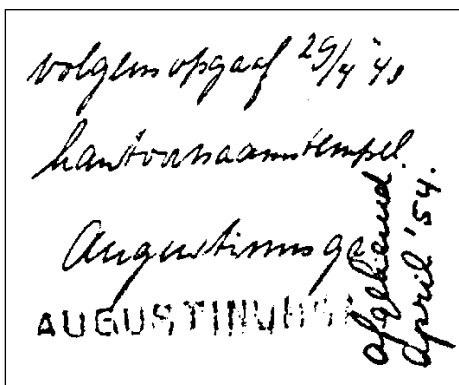 volgens opgaaf 29/4
kantoornaamstempel.
Augustinusga
AUGUSTINUSGA
afgekeurd.
april '54.